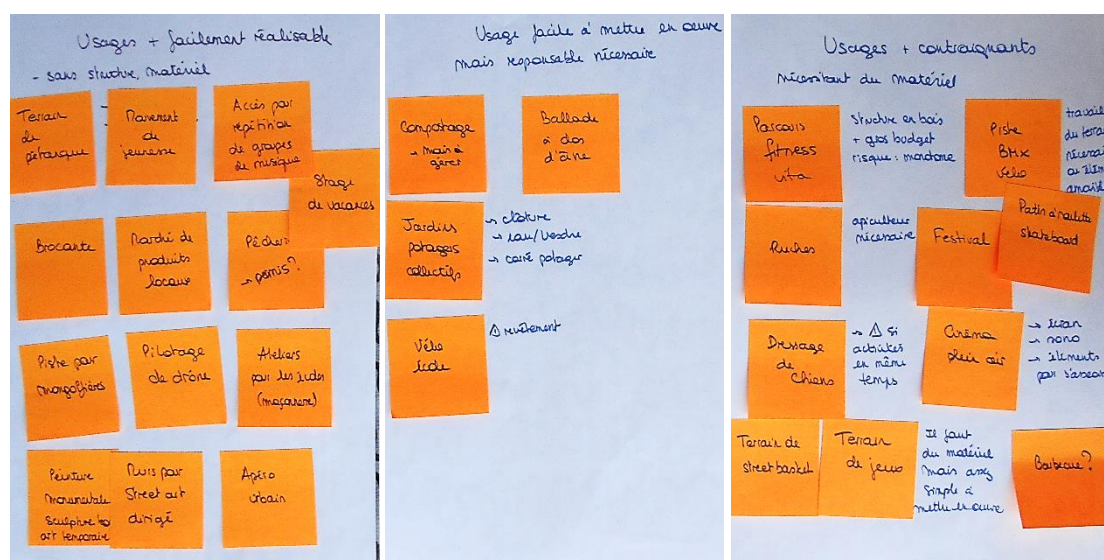 Usages + facilement réalisable
- sans structure, matériel
Terrain
de
pétanque
Mouvement
de
jeunesse
Accès pour
répétition
de groupes
de musique
Stage
de vacances
Brocante
Marché de
produits
locaux
Pêcherie
→ permis?
Piste pour
mongolfières
Pilotage
de drône
Ateliers
pour les écoles
(maçonnerie)
Peinture
monumentale
sculpture
art temporaire
Murs pour
Street art
dirigé
Apéro
urbain
Usage facile à mettre en œuvre
mais responsable nécessaire
Compostage
→ mais à
gérer
Ballade
à dos
d'âne
Jardins
potagers
collectifs
→ clôture
→ eau/Vesdre
→ carré potager
Vélo
école
⚠ revêtement
Usages + contraignants
nécessitant du matériel
Parcours
fitness
vita
structure en bois
+ gros budget
risque: monotone
Piste
BMX
Vélo
travail
du terrain
nécessaire
ou élém
Ruches
apiculteur
nécessaire
Festival
Patin à roulette
skateboard
Dressage
de chiens
→ ⚠ si
activités
en même
temps
Cinéma
plein air
→ écran
→ sono
→ éléments
pour s'asseoir
Terrain de
street basket
Terrain
de jeux
Il faut
du matériel
mais assez
simple à
mettre en œuvre
Barbecue?